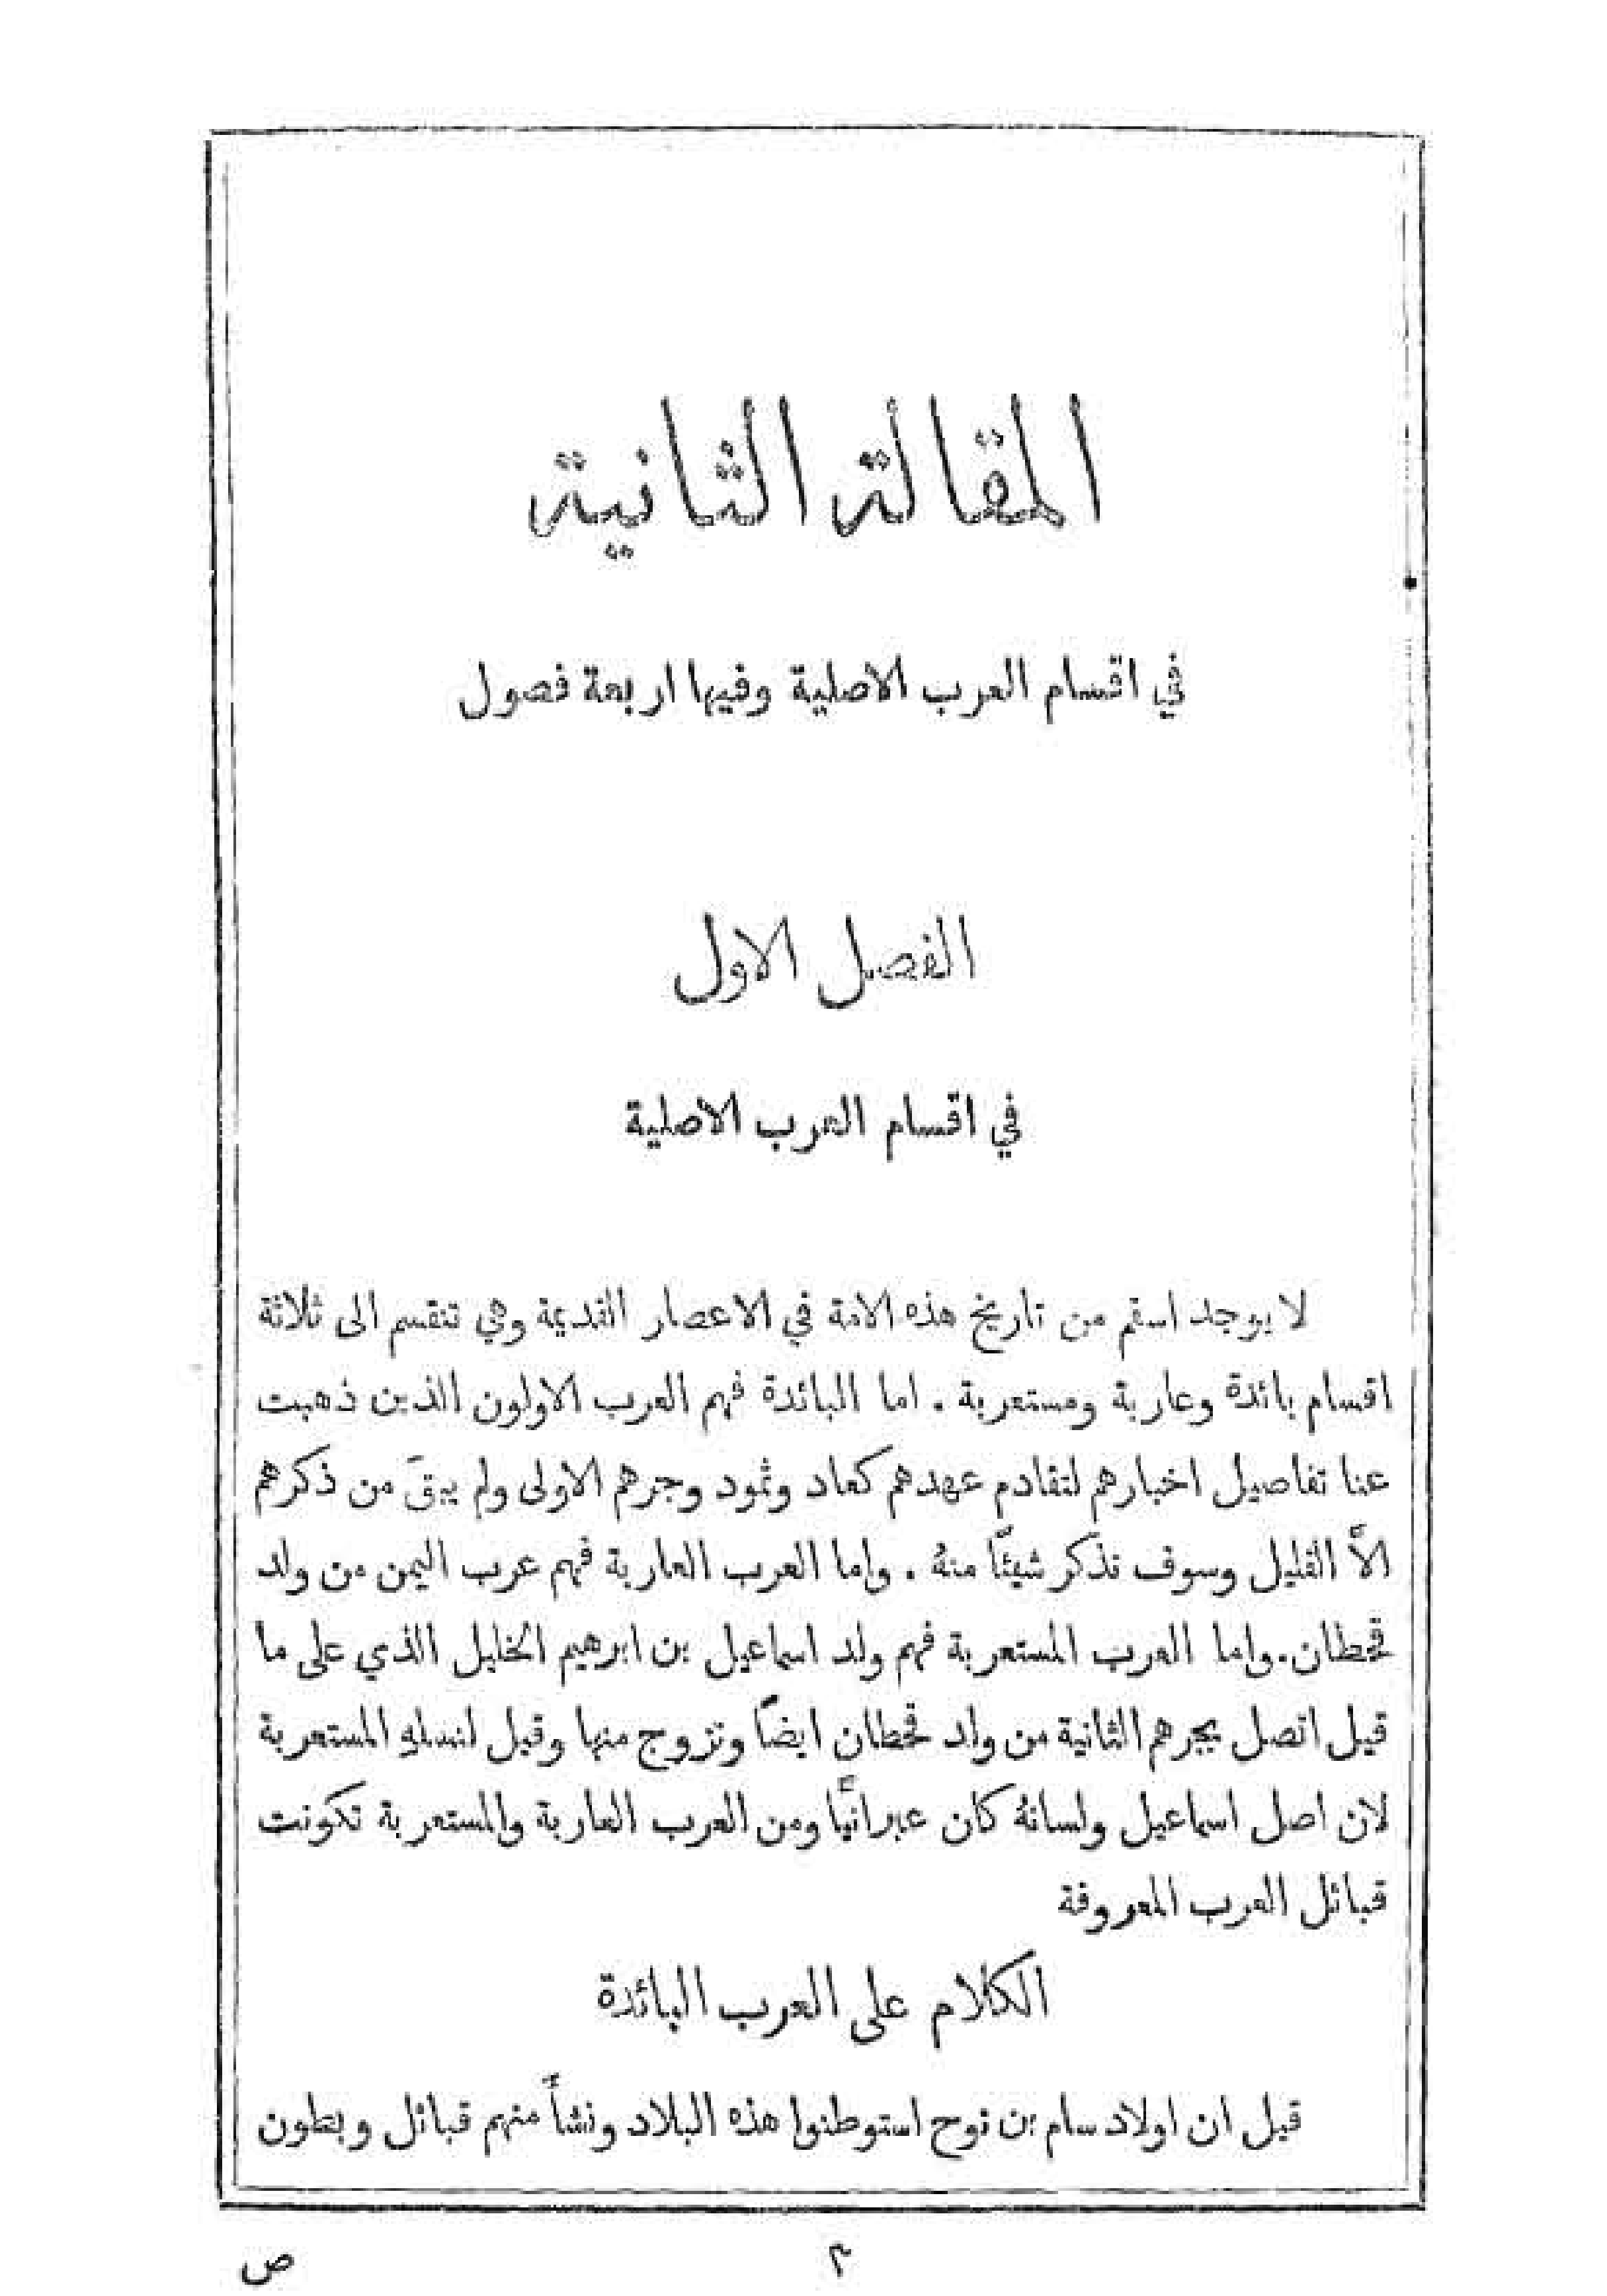 المقالة الثانية
في اقسام العرب الاصلية وفيها اربعة فصول
الفصل الاول
في اقسام العرب الاصلية
لا يوجد اسقم من تاريخ هذه الامة في الاعصار القديمة وهي تنقسم الى ثلاثة
اقسام بائدة وعاربة ومستعربة . اما البائدة فهم العرب الاولون الذين ذهبت
عنا تفاصيل اخبارهم لتقادم عهدهم كعاد وثمود وجرهم الاولى ولم يبقَ من ذكرهم
الاَّ القليل وسوف نذكر شيئًا منهُ . واما العرب العاربة فهم عرب اليمن من ولد
قحطان. واما العرب المستعربة فهم ولد اسماعيل بن ابرهيم الخليل الذي على ما
قيل اتصل بجرهم الثانية من ولد قحطان ايضًا وتزوج منها وقيل لنسله المستعربة
لان اصل اسماعيل ولسانهُ كان عبرانيًّا ومن العرب العاربة والمستعربة تكونت
قبائل العرب المعروفة
الكلام على العرب البائدة
قيل ان اولاد سام بن نوح استوطنوا هذه البلاد ونشأ منهم قبائل وبطون
ص